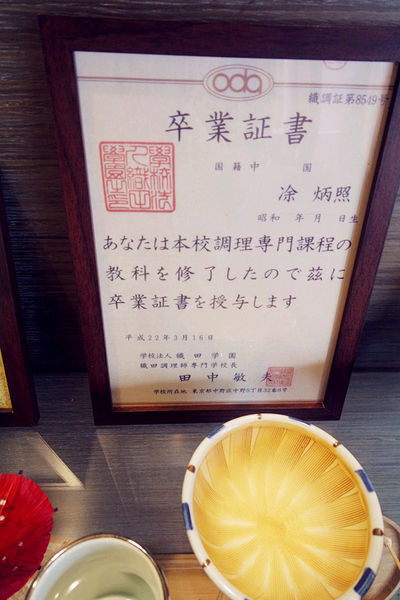 oda
織調証第8549号
卒業証書
国籍中 国
涂 炳照
昭和 年 月 日生
あなたは本校調理専門課程の
教科を修了したので茲に
卒業証書を授与します
平成22年3月16日
学校法人 織田学園
織田調理師専門学校長
田中敏夫
学校所在地 東京都中野区中野5丁目32番8号